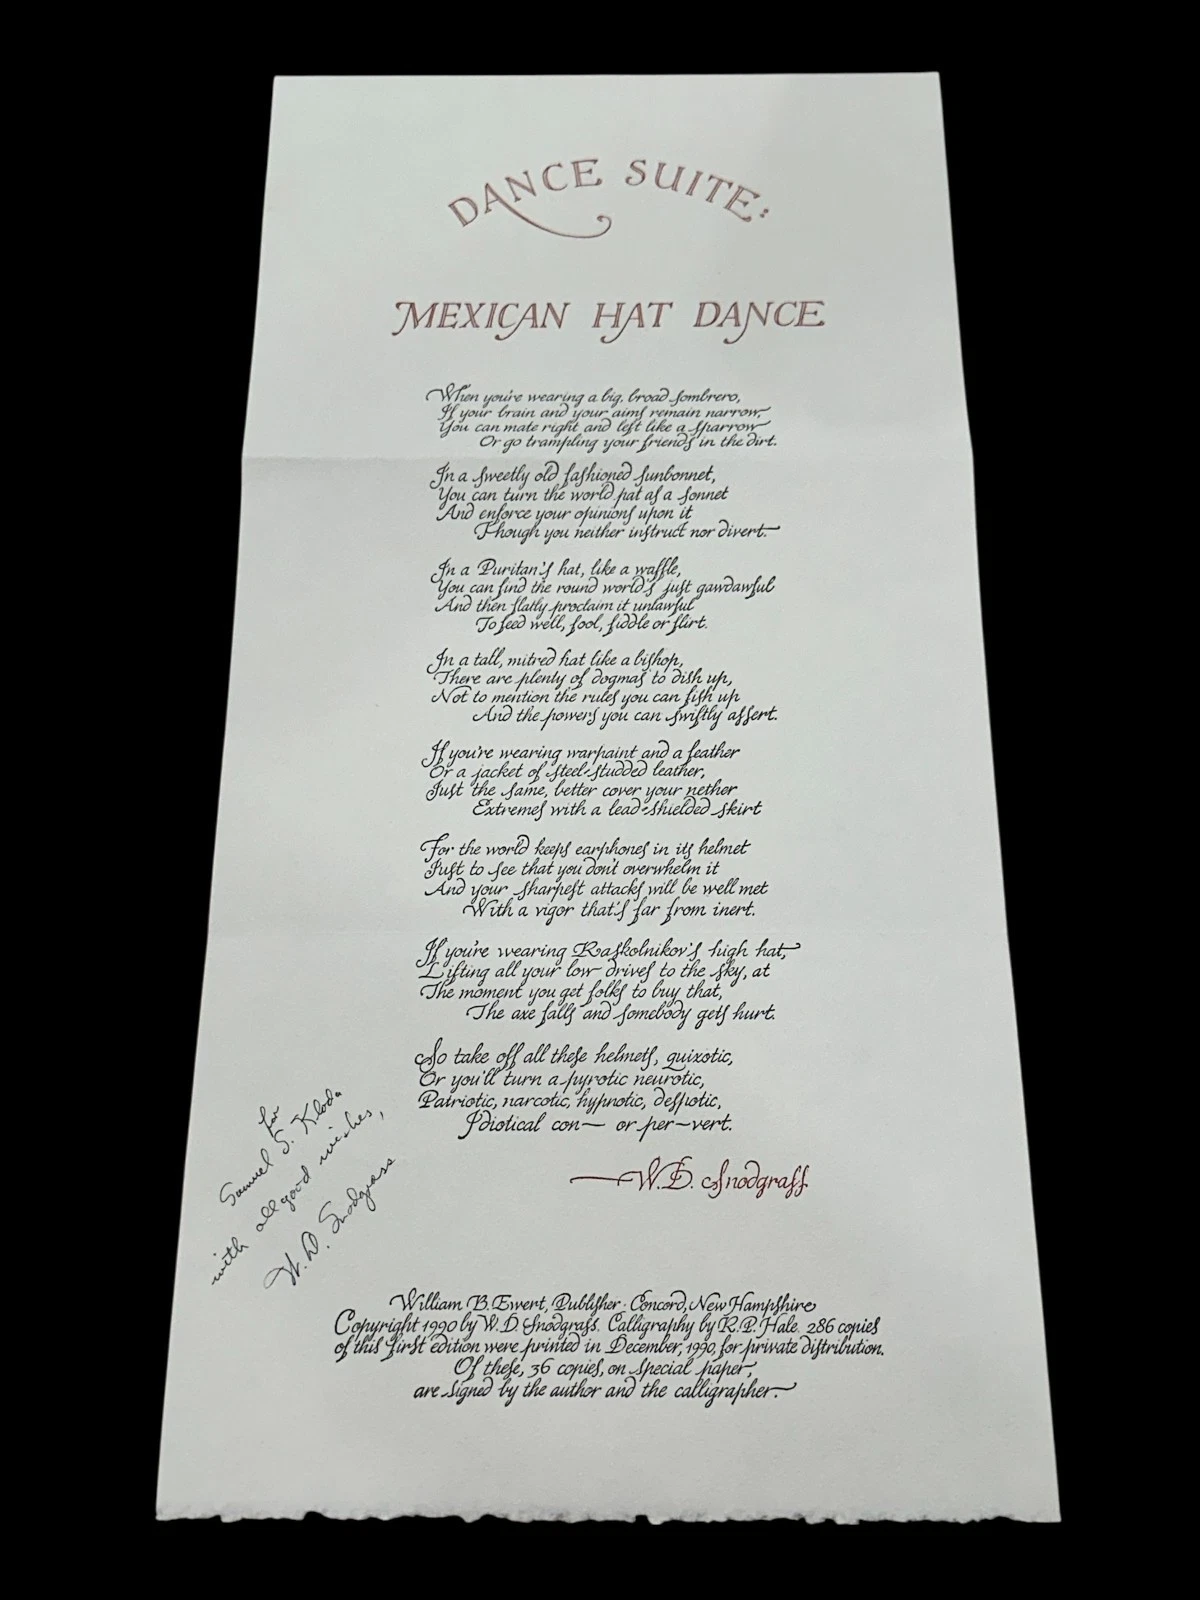 DANCE SUITE:
MEXICAN HAT DANCE
When you're wearing a big, broad sombrero,
If your brain and your aims remain narrow,
You can mate right and left like a sparrow
Or go trampling your friends in the dirt.
In a sweetly old fashioned sunbonnet,
You can turn the world pat as a sonnet
And enforce your opinions upon it
Though you neither instruct nor divert.
In a Puritan's hat, like a waffle,
You can find the round world's just gawdawful
And then flatly proclaim it unlawful
To feed well, fool, fiddle or flirt.
In a tall, mitred hat like a bishop,
There are plenty of dogmas to dish up,
Not to mention the rules you can fish up
And the powers you can swiftly assert.
If you're wearing warpaint and a feather
Or a jacket of steel-studded leather,
Just the same, better cover your nether
Extremes with a lead-shielded skirt
For the world keeps earphones in its helmet
Just to see that you don't overwhelm it
And your sharpest attacks will be well met
With a vigor that's far from inert.
If you're wearing Raskolnikov's high hat,
Lifting all your low drives to the sky, at
The moment you get folks to buy that,
The axe falls and somebody gets hurt.
So take off all these helmets, quixotic,
Or you'll turn a pyrotic neurotic,
Patriotic, narcotic, hypnotic, despotic,
Idiotical con— or per—vert.
—W. D. Snodgrass
for
Samuel S. Kloda
with all good wishes,
W. D. Snodgrass
William B. Ewert, Publisher · Concord, New Hampshire
Copyright 1990 by W. D. Snodgrass. Calligraphy by R. P. Hale. 286 copies
of this first edition were printed in December, 1990, for private distribution.
Of these, 36 copies, on special paper,
are signed by the author and the calligrapher.